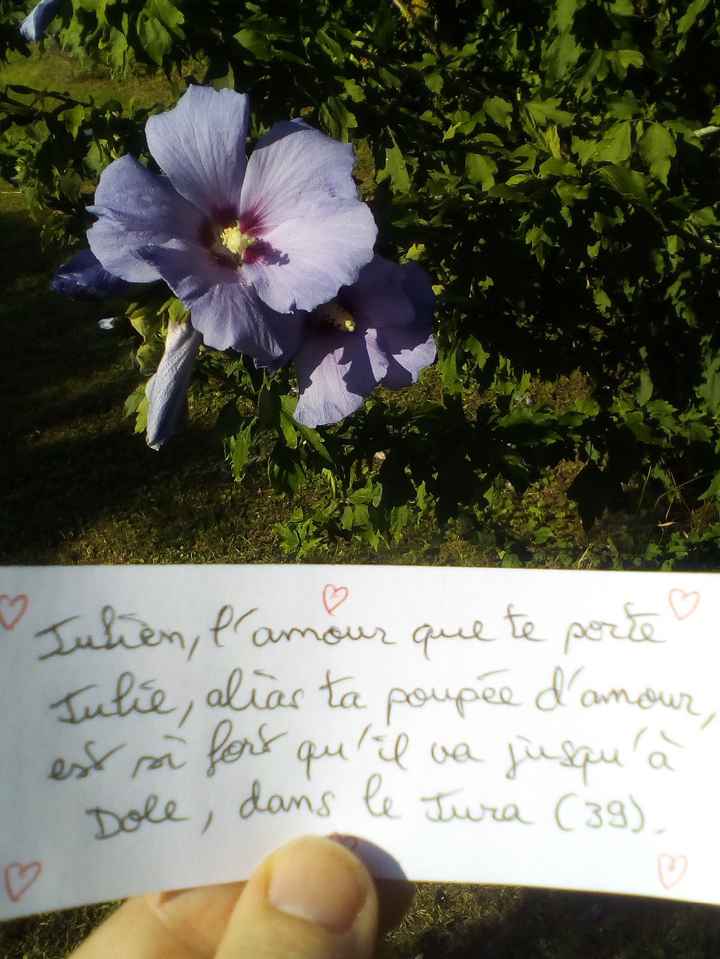 Julien, l'amour que te porte
Julie, alias ta poupée d'amour,
est si fort qu'il va jusqu'à
Dole, dans le Jura (39).